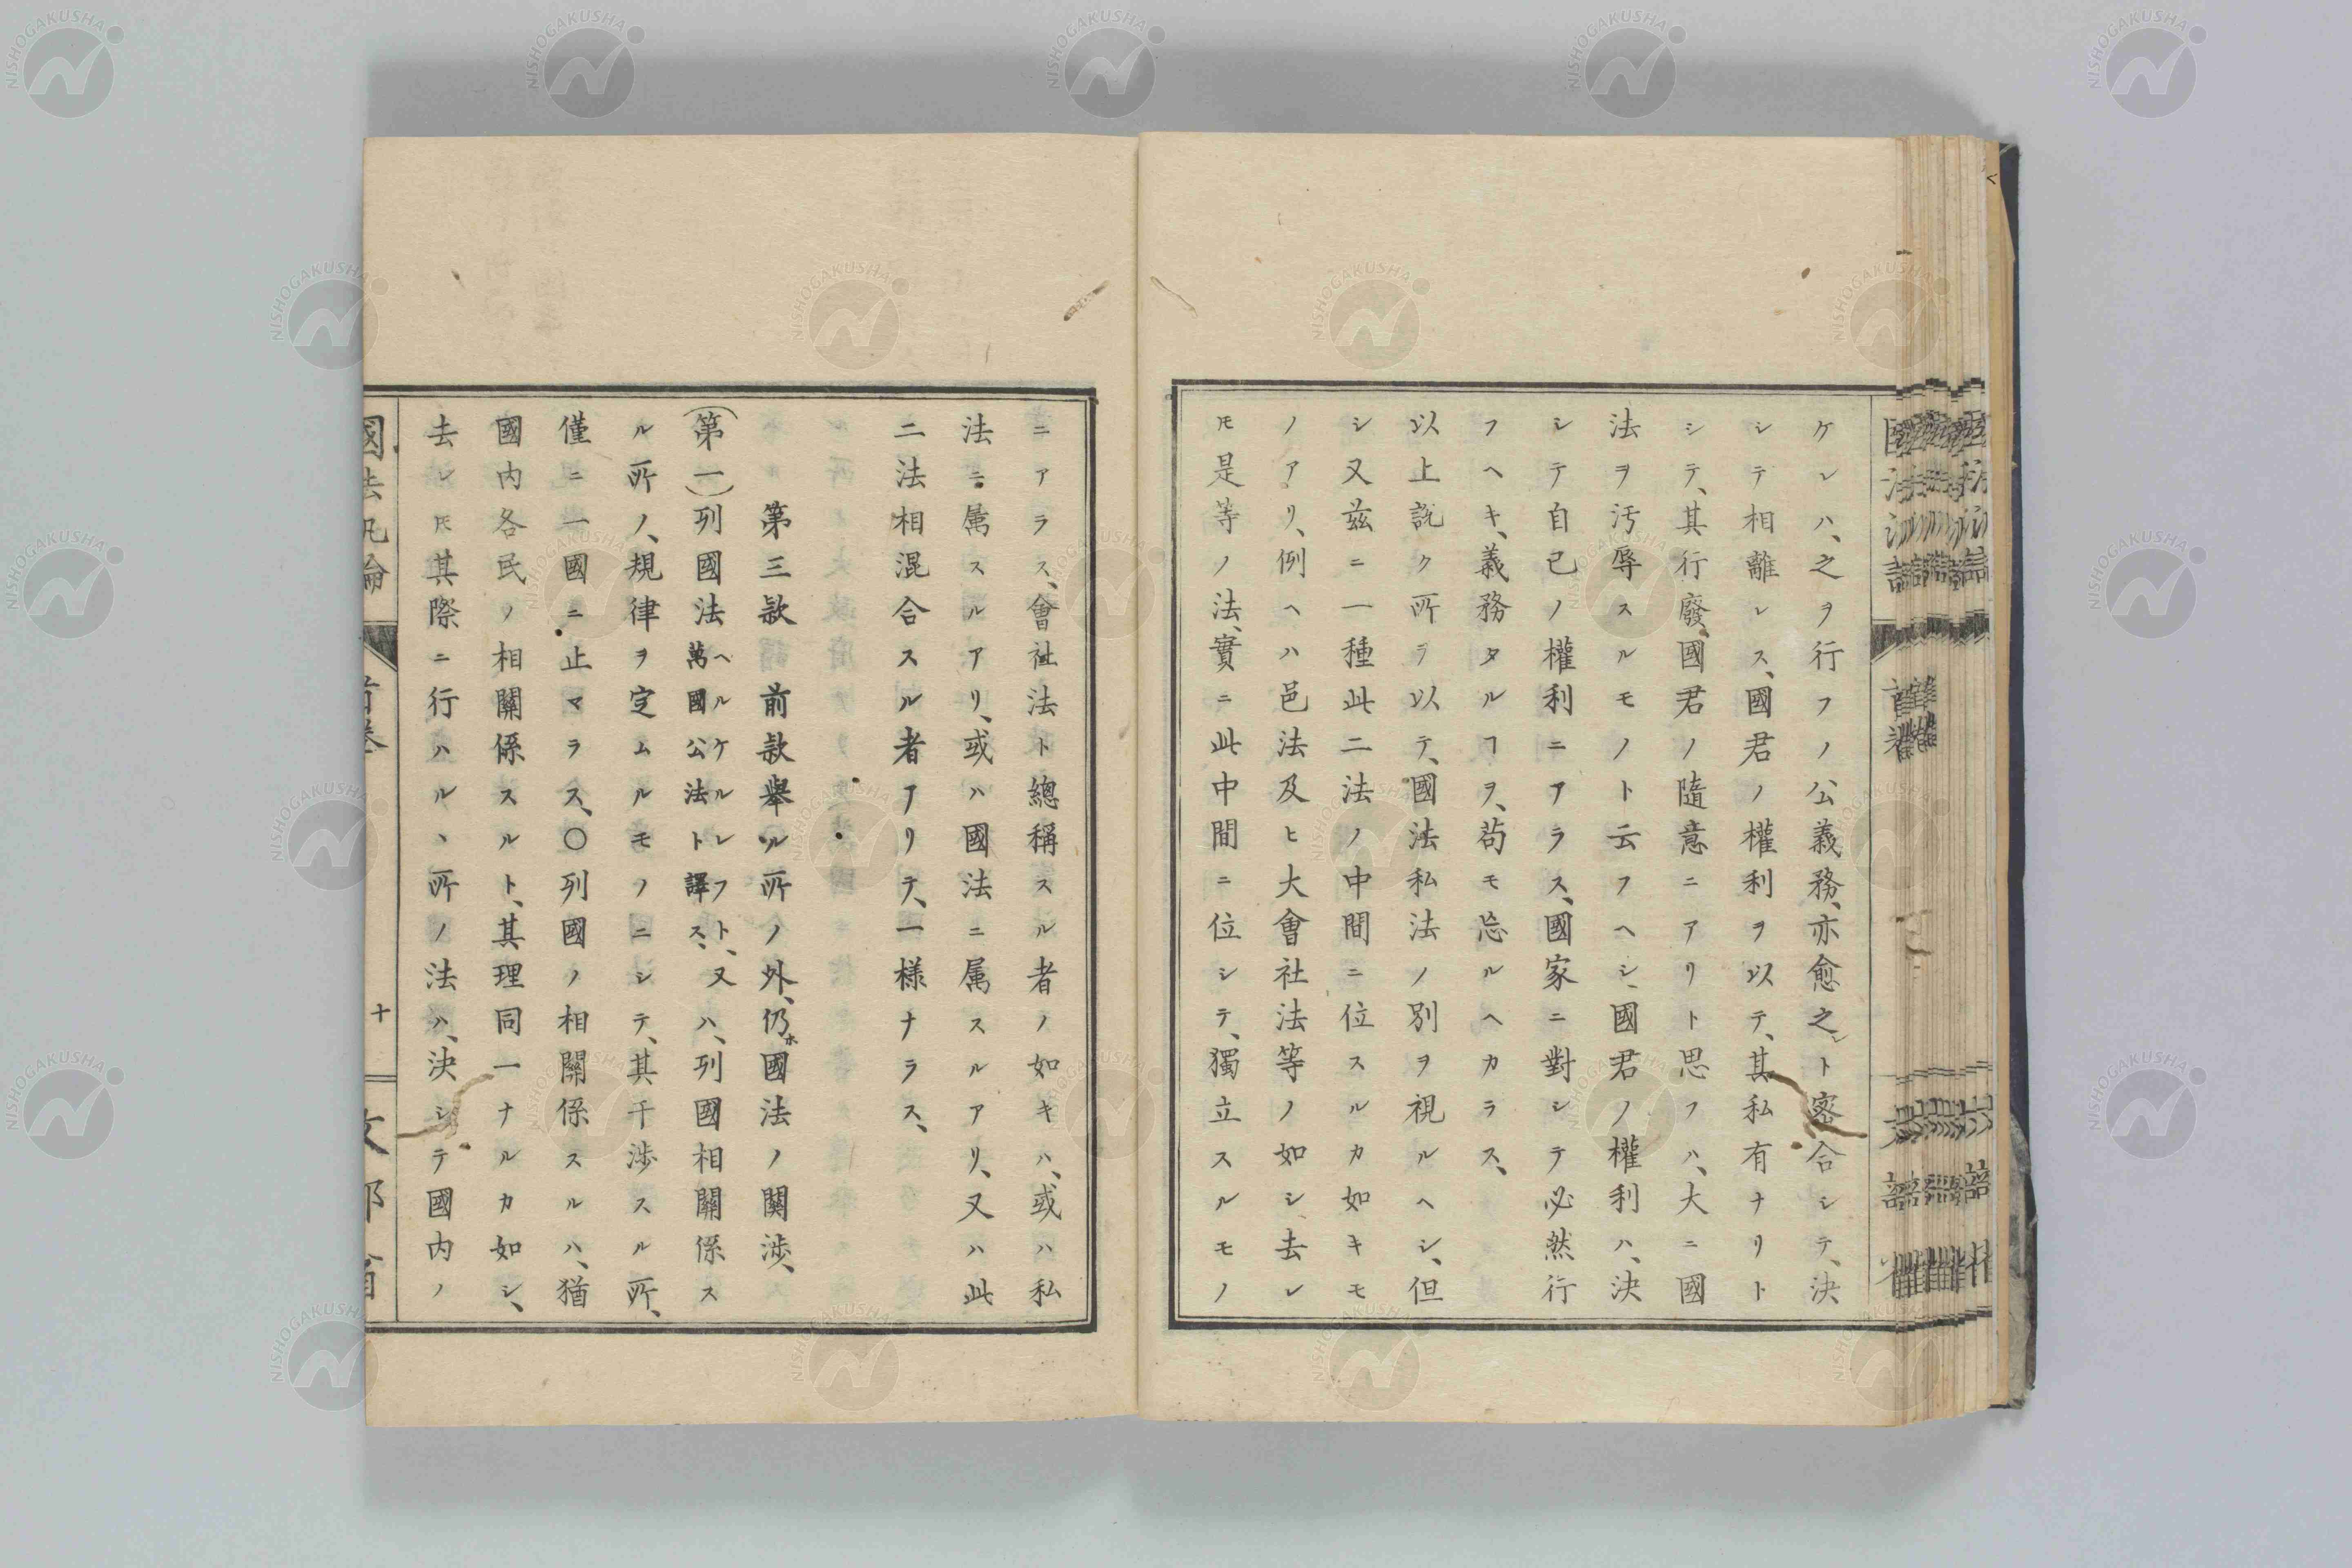 ケレハ、之ヲ行フノ公義務、亦愈之レト密合シテ、決
シテ相離レス、國君ノ權利ヲ以テ、其私有ナリト
シテ、其行廢、國君ノ隨意ニアリト思フハ、大ニ國
法ヲ汚辱スルモノト云フヘシ、國君ノ權利ハ、決
シテ自己ノ權利ニアラス、國家ニ對シテ必然行
フヘキ、義務タルヿヲ、苟モ忘ルヘカラス、
以上説ク所ヲ以テ、國法私法ノ別ヲ視ルヘシ、但
シ又茲ニ一種此二法ノ中間ニ位スルカ如キモ
ノアリ、例ヘハ邑法及ヒ大會社法等ノ如シ去レ
𪜈是等ノ法、實ニ此中間ニ位シテ、獨立スルモノ
ニアラス、會社法ト總稱スル者ノ如キハ、或ハ私
法ニ属スルアリ、或ハ國法ニ属スルアリ、又ハ此
二法相混合スル者アリテ、一様ナラス、
第三款 前款舉ル所ノ外、仍ホ國法ノ関渉、
(第一)列國法ヘルケルレフト、又萬國公法ト譯ス、ハ、列國相關係ス
ル所ノ、規律ヲ定ムルモノニシテ、其干渉スル所、
僅ニ一國ニ止マラス、〇列國ノ相關係スルハ、猶
國内各民ノ相關係スルト、其理同一ナルカ如シ、
去レ𪜈其際ニ行ハルヽ所ノ法ハ、決シテ國内ノ
國法汎論
首卷
十
文部省
NISHOGAKUSHA